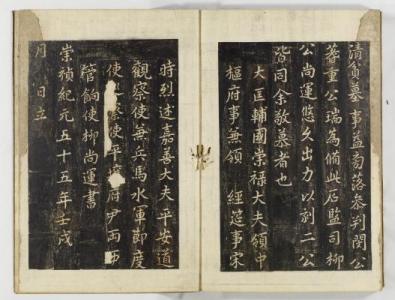 清貧墓事益落參判閔公
蓍重公瑞爲備此石監司柳
公尚運悠久出力以刻二公
皆同余敬慕者也
大匡輔國崇祿大夫領中
樞府事兼領 經筵事宋
時烈述嘉善大夫平安道
觀察使兼兵馬水軍節度
使察使平府尹
管餉使柳尚運書
崇禎紀元五十五年壬戌
月 日立